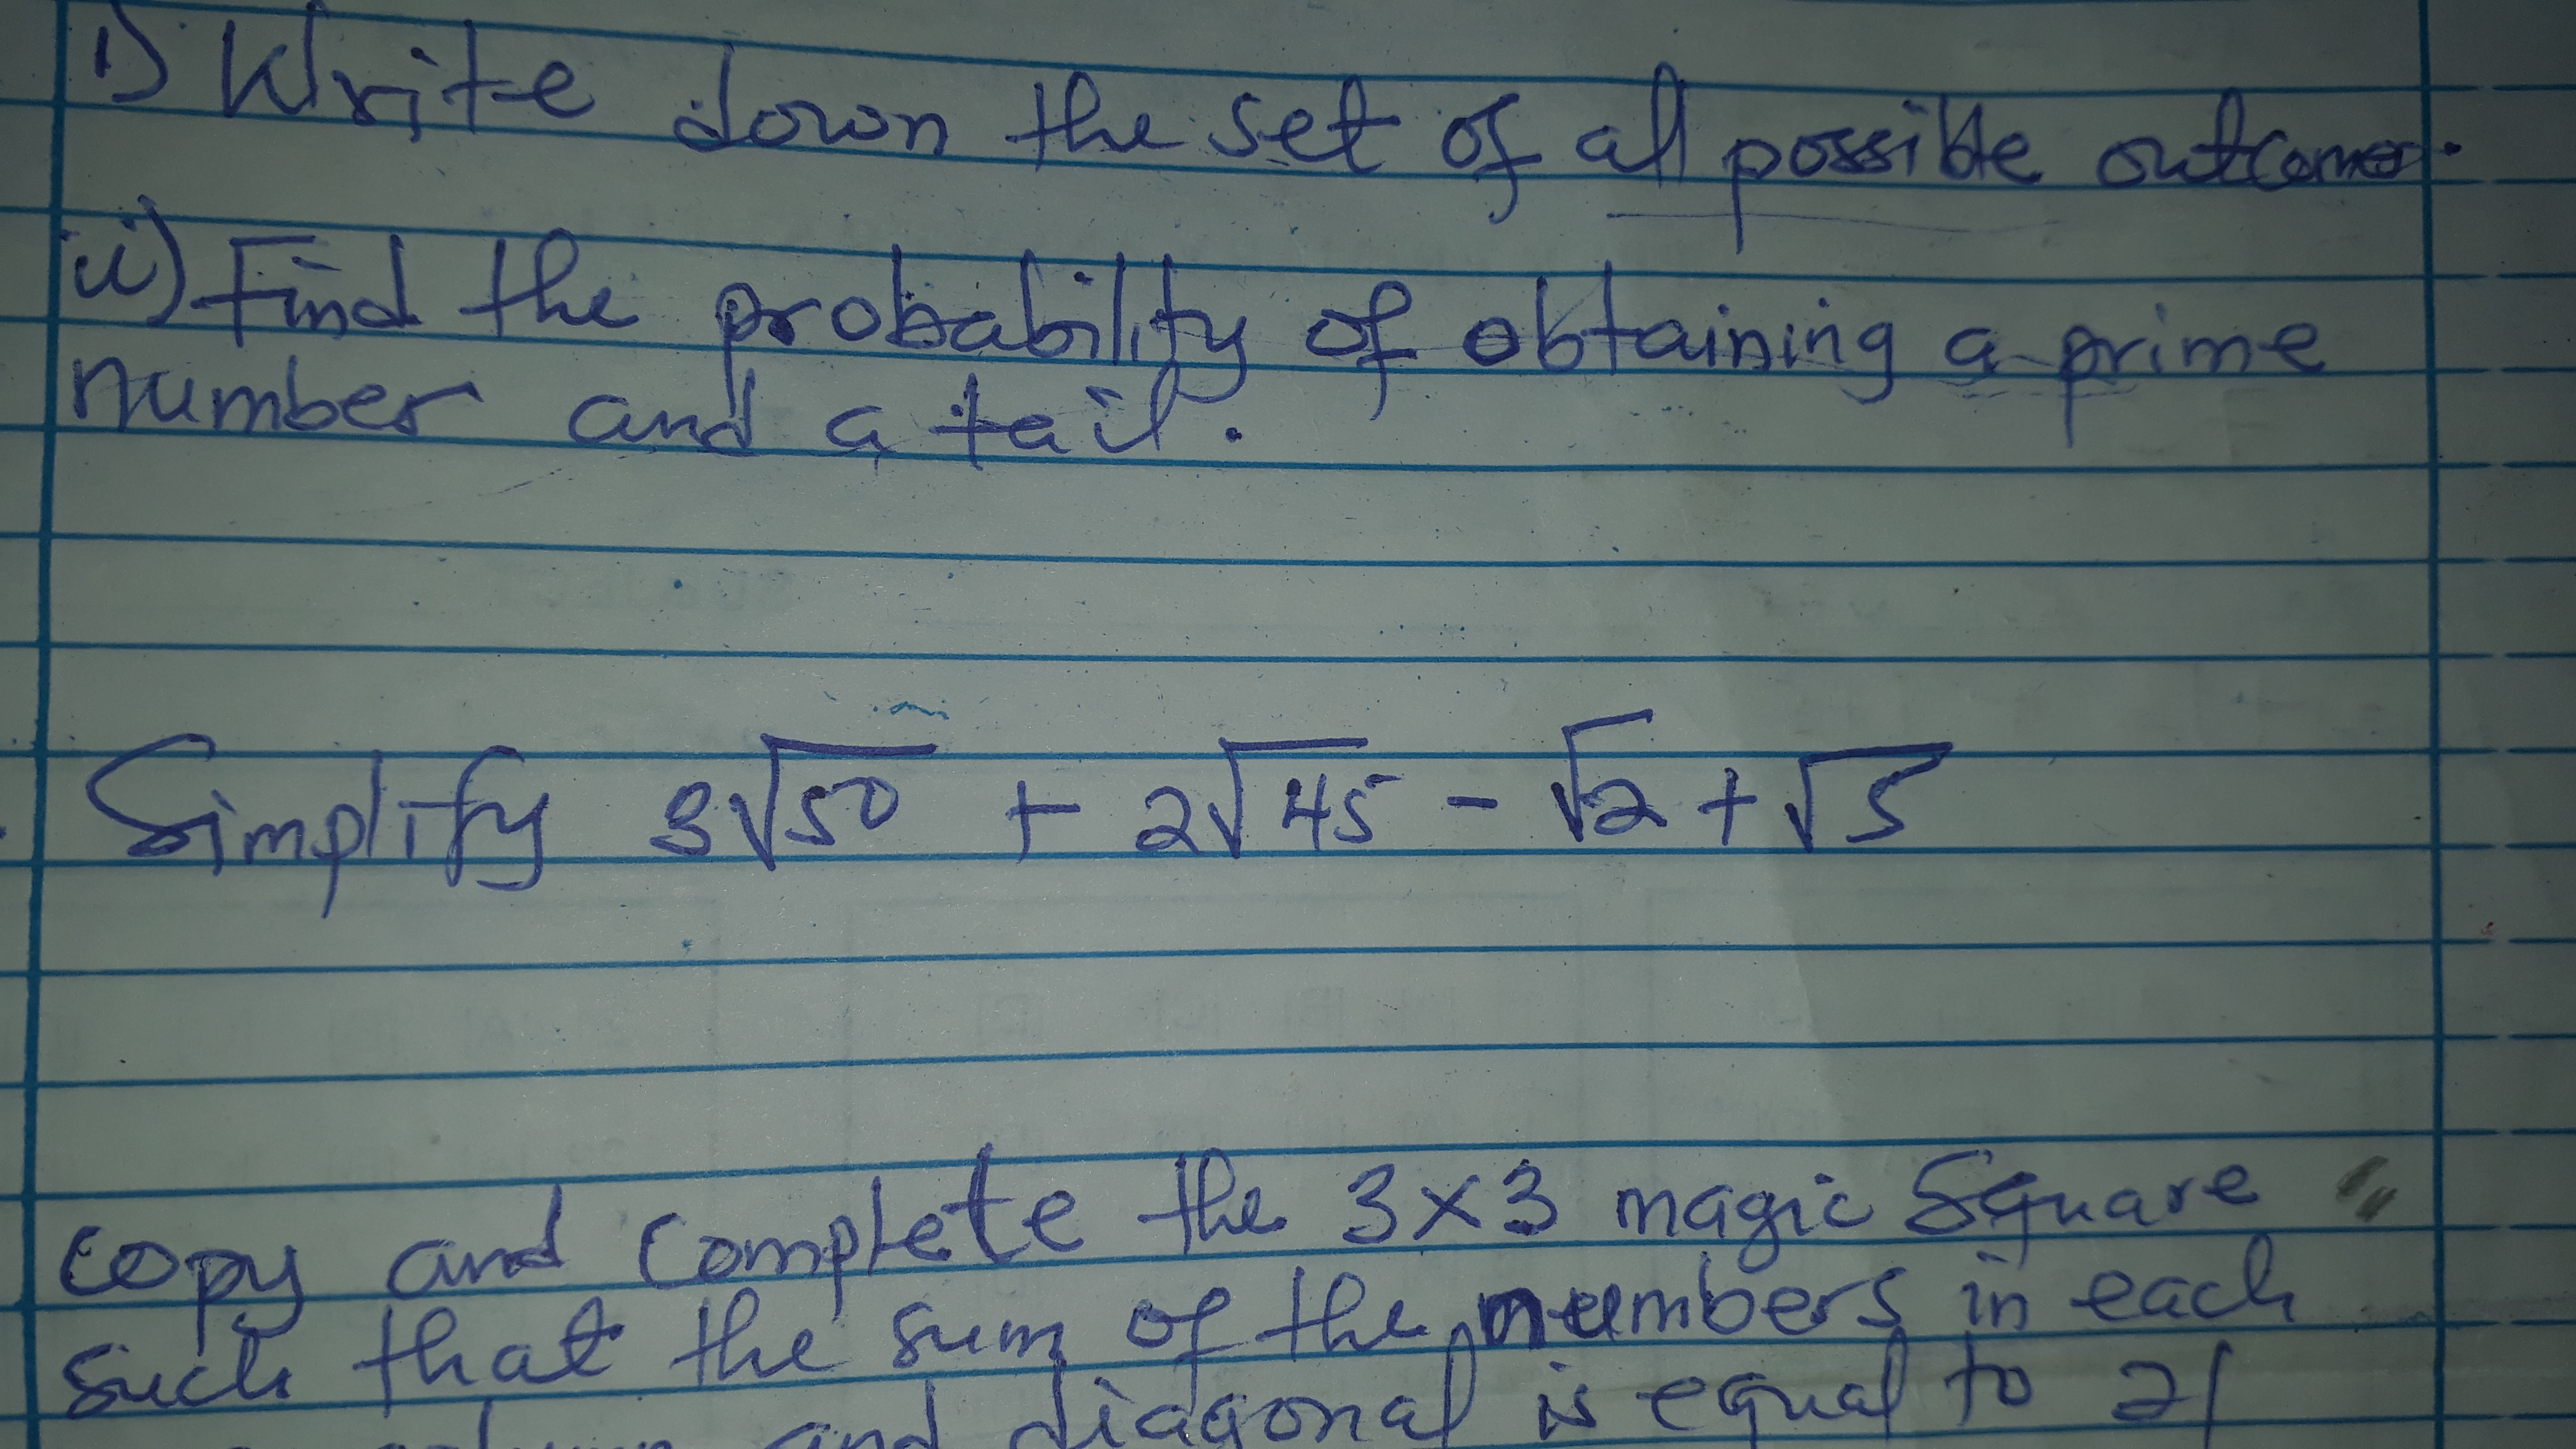 i) Write down the set of all possible outcomes.
ii) Find the probability of obtaining a prime
number and a tail.
Simplify 8√50 + 2√45 - √2 + √5
Copy and Complete the 3×3 magic Square
such that the sum of the numbers in each
and diagonal is equal to 21